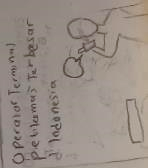 Operator Terminal
Petikemas Terbesar
di Indonesia